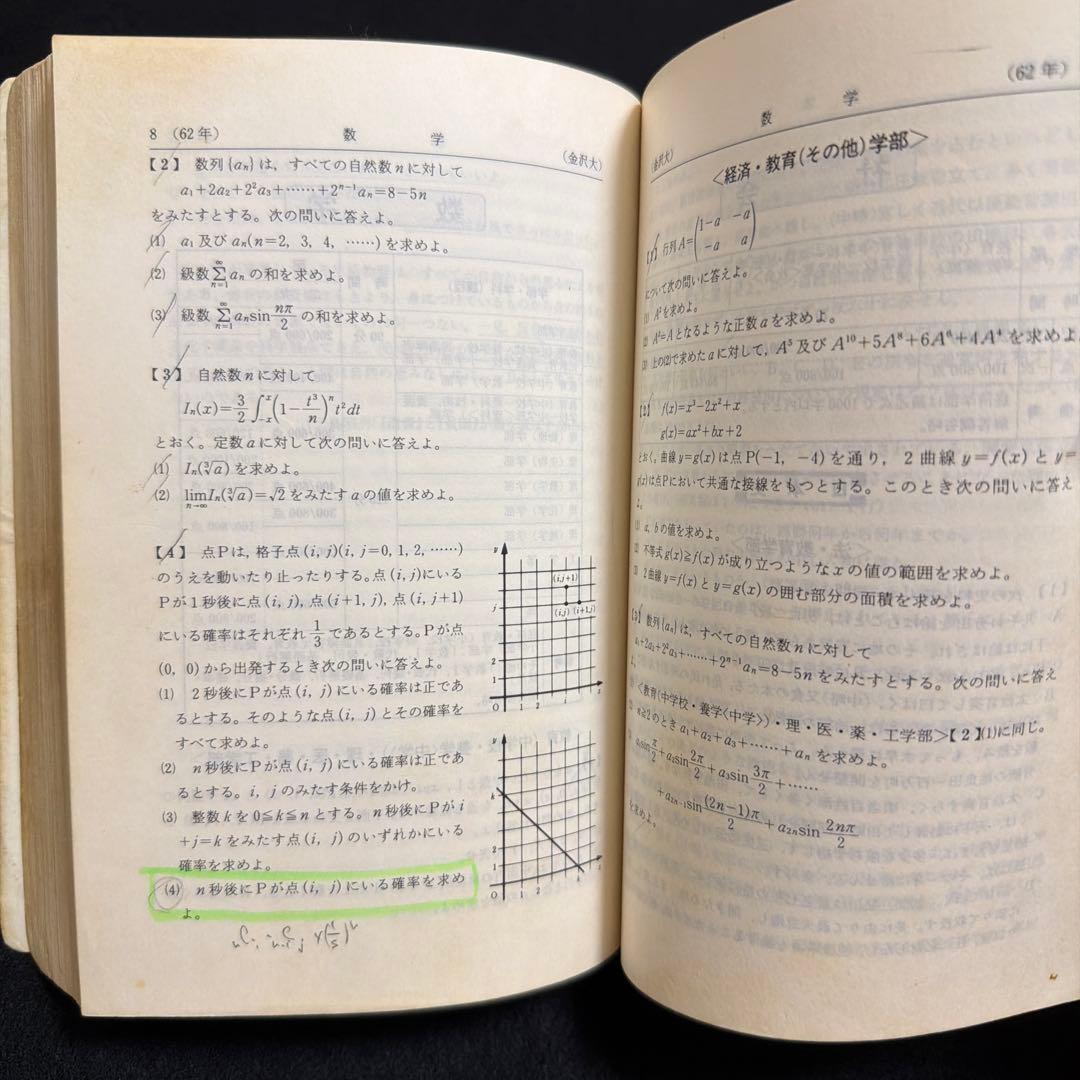 8 (62年) 数 学 (金沢大)
【2】 数列{aₙ}は,すべての自然数nに対して
a₁+2a₂+2²a₃+……+2ⁿ⁻¹aₙ=8-5n
をみたすとする。次の問いに答えよ。
(1) a₁及びaₙ(n=2, 3, 4, ……)を求めよ。
(2) 級数 ∞Σn=1 aₙの和を求めよ。
(3) 級数 ∞Σn=1 aₙsin nπ/2 の和を求めよ。
【3】 自然数nに対して
Iₙ(x)=3/2∫₋ₓˣ(1-t³/n)ⁿt²dt
とおく。定数aに対して次の問いに答えよ。
(1) Iₙ(∛a)を求めよ。
(2) lim n→∞ Iₙ(∛a)=√2をみたすaの値を求めよ。
【4】 点Pは,格子点(i, j)(i, j=0, 1, 2, ……)
のうえを動いたり止ったりする。点(i, j)にいる
Pが1秒後に点(i, j), 点(i+1, j), 点(i, j+1)
にいる確率はそれぞれ 1/3 であるとする。Pが点
(0, 0)から出発するとき次の問いに答えよ。
(1) 2秒後にPが点(i, j)にいる確率は正であ
るとする。そのような点(i, j)とその確率を
すべて求めよ。
(2) n秒後にPが点(i, j)にいる確率は正であ
るとする。i, jのみたす条件をかけ。
(3) 整数kを0≦k≦nとする。n秒後にPがi
+j=kをみたす点(i, j)のいずれかにいる
確率を求めよ。
(4) n秒後にPが点(i, j)にいる確率を求め
よ。
y
(i,j+1)
j
(i,j) (i+1,j)
2
1
0
O 1 2 i x
y
k
2
1
0
O 1 2 k x
(62年)
数 学
(金沢大)
<経済・教育(その他)学部>
【1】 行列A=(1-a -a
-a a)
について次の問いに答えよ。
(1) A²を求めよ。
(2) A²=Aとなるような正数aを求めよ。
(3) 上の(2)で求めたaに対して,A⁵及びA¹⁰+5A⁸+6A⁶+4A⁴を求めよ
【2】 f(x)=x³-2x²+x
g(x)=ax²+bx+2
とおく。曲線y=g(x)は点P(-1, -4)を通り,2曲線y=f(x)とy=
g(x)は点Pにおいて共通な接線をもつとする。このとき次の問いに答え
よ。
(1) a, bの値を求めよ。
(2) 不等式g(x)≧f(x)が成り立つようなxの値の範囲を求めよ。
(3) 2曲線y=f(x)とy=g(x)の囲む部分の面積を求めよ。
【3】 数列{aₙ}は,すべての自然数nに対して
a₁+2a₂+2²a₃+……+2ⁿ⁻¹aₙ=8-5nをみたすとする。次の問いに答え
よ。
<教育(中学校・養学〈中学〉)・理・医・薬・工学部>【2】(1)に同じ。
n≧2のときa₁+a₂+a₃+……+aₙを求めよ。
a₁sin π/2+a₂sin 2π/2+a₃sin 3π/2+……
+a₂ₙ₋₁sin (2n-1)π/2+a₂ₙsin 2nπ/2
を求めよ。